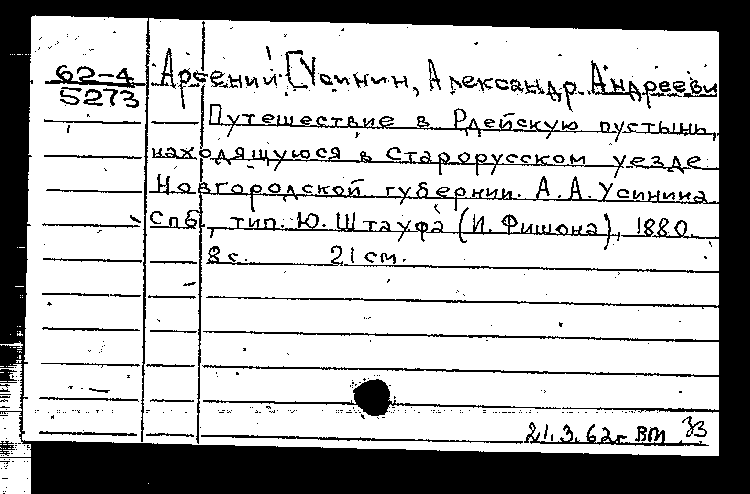 62-4
5273
Арсений [Усинин, Александр Андрееви
Путешествие в Рдейскую пустынь,
находящуюся в Старорусском уезде
Новгородской губернии. А.А. Усинина
Спб., тип. Ю. Штауфа (И. Фишона), 1880.
8 с. 21 см.
21.3.62 г. ВМ